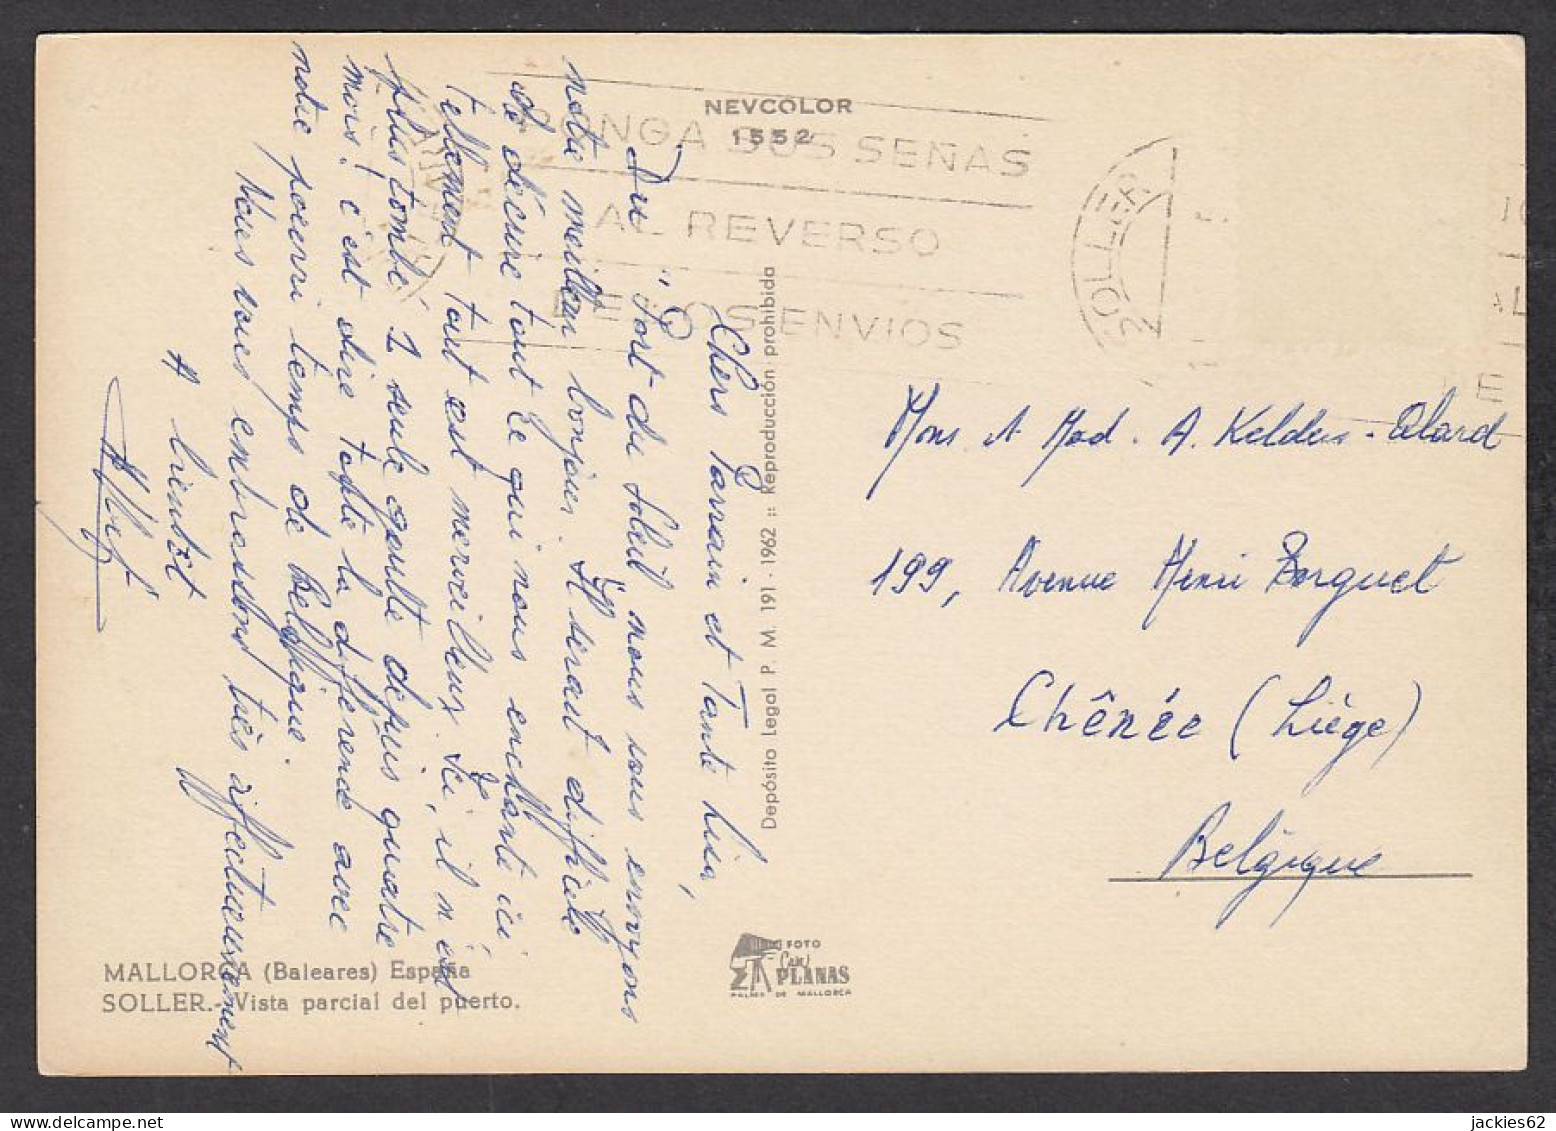 NEVCOLOR
1552
PONGA SUS SEÑAS
AL REVERSO
DE LOS ENVIOS
SOLLER
Chers Parrain et Tante Lisa,
Du "Port du Soleil nous vous envoyons
notre meilleur bonjour. Il serait difficile
de décrire tout ce qui nous enchante ici
tellement tout est merveilleux. Ici, il n'est
plus tombé 1 seule goutte depuis quatre
mois! c'est dire toute la différence avec
notre pourri temps de Belgique.
Nous vous embrassons très affectueusement
A bientôt
Mons et Mad. A. Kelders-
199, Avenue Henri Borguet
Chênée (Liège)
Belgique
Depósito Legal P. M. 191 - 1962 :: Reproducción prohibida
FOTO
PLANAS
PALMA DE MALLORCA
MALLORCA (Baleares) España
SOLLER.- Vista parcial del puerto.
jackies62